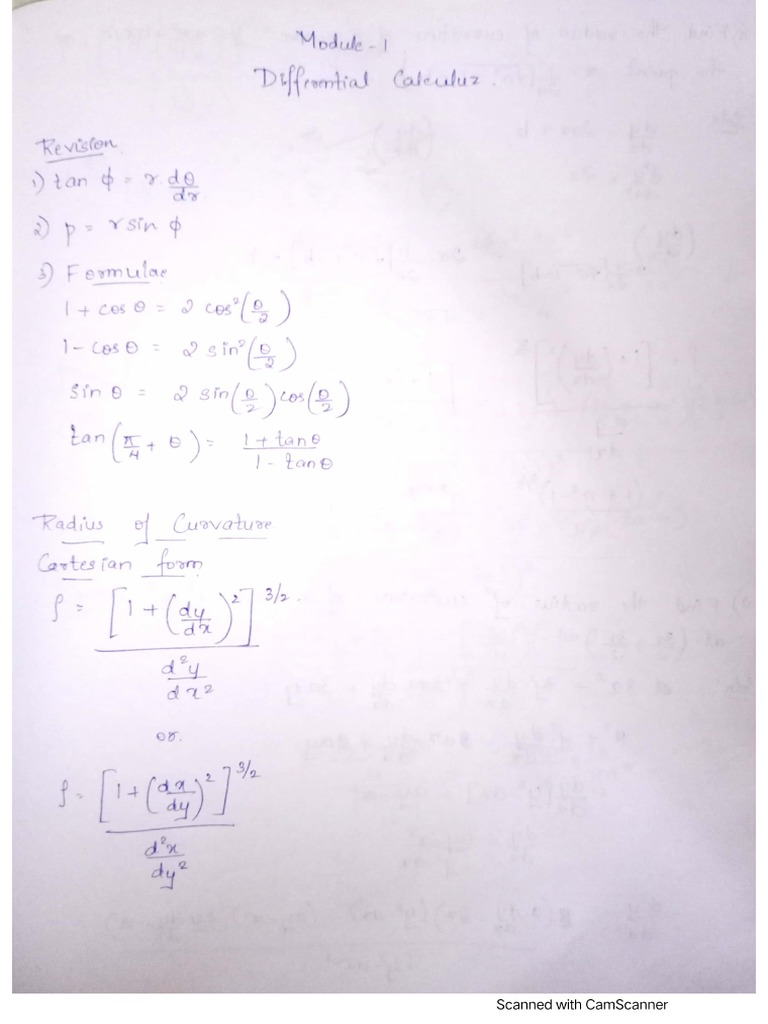 Module - 1
Differential Calculus.
Revision
1) tan ϕ = r dθ/dr
2) p = r sin ϕ
3) Formulae
1 + cos θ = 2 cos²(θ/2)
1 - cos θ = 2 sin²(θ/2)
sin θ = 2 sin(θ/2) cos(θ/2)
tan(π/4 + θ) = (1 + tanθ)/(1 - tanθ)
Radius of Curvature
Cartesian form
ρ = [1 + (dy/dx)²]^3/2 / (d²y/dx²)
or
ρ = [1 + (dx/dy)²]^3/2 / (d²x/dy²)
Scanned with CamScanner